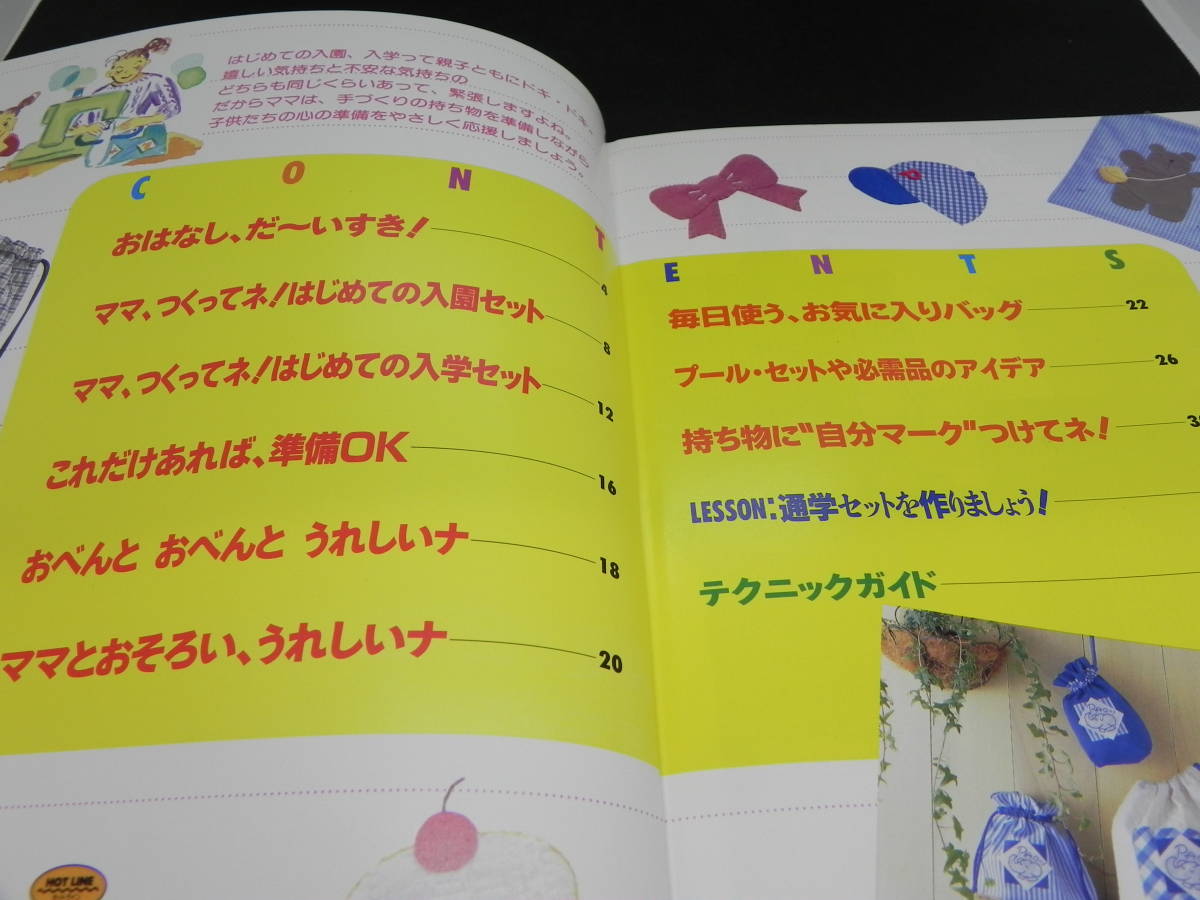 はじめての入園、入学って親子ともにドキ・ドキ。
嬉しい気持ちと不安な気持ちの
どちらも同じくらいあって、緊張しますよね。
だからママは、手づくりの持ち物を準備しながら
子供たちの心の準備をやさしく応援しましょう。
CONTENTS
おはなし、だ〜いすき! 4
ママ、つくってネ!はじめての入園セット 8
ママ、つくってネ!はじめての入学セット 12
これだけあれば、準備OK 16
おべんと おべんと うれしいナ 18
ママとおそろい、うれしいナ 20
毎日使う、お気に入りバッグ 22
プール・セットや必需品のアイデア 26
持ち物に"自分マーク"つけてネ!
LESSON:通学セットを作りましょう!
テクニックガイド
HOT LINE